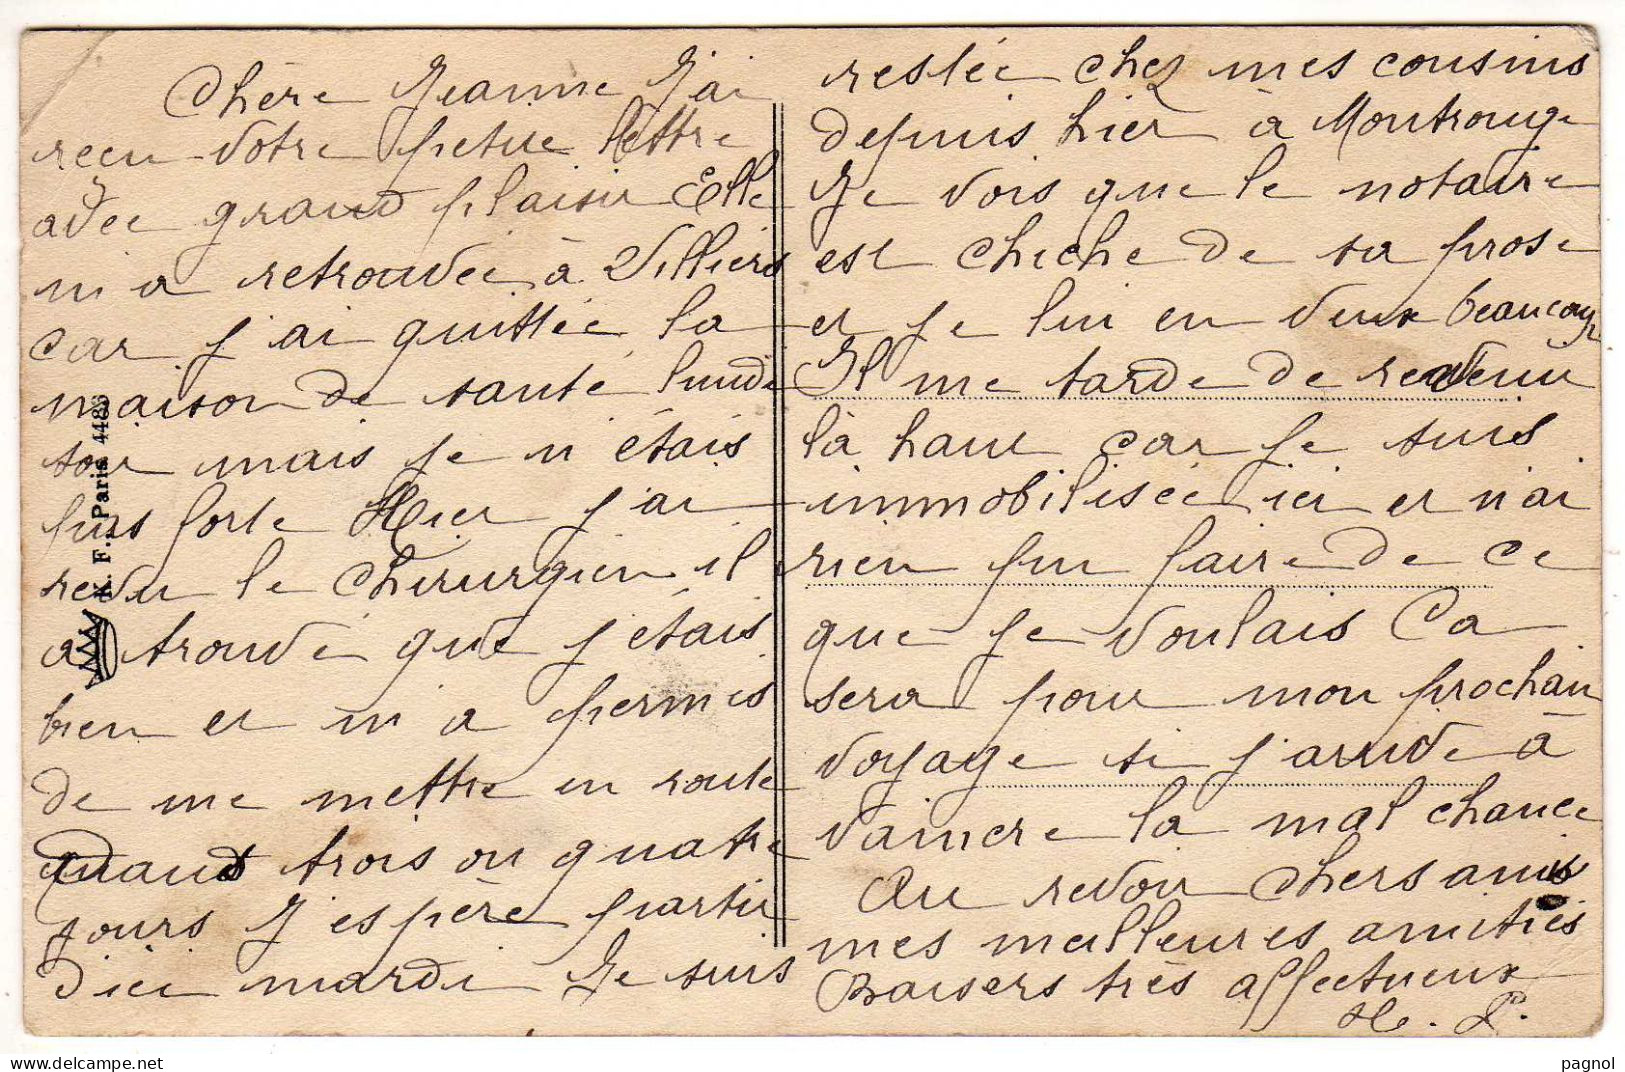 Chère Jeanne J'ai
reçu votre petite lettre
avec grand plaisir Elle
m'a retrouvée à Villiers
car j'ai quittée la
maison de santé lundi
soir mais je n'étais
pas forte Hier j'ai
revu le chirurgien il
a trouvé que j'étais
bien et m'a permis
de me mettre en route
quand trois ou quatre
jours J'espère partir
d'ici mardi Je suis
K. F., Paris 4486
restée chez mes cousins
depuis hier à Montrouge
Je vois que le notaire
est chiche de sa prose
et je lui en veux beaucoup
Il me tarde de revenir
là haut car je suis
immobilisée ici et n'ai
rien pu faire de ce
que je voulais Ca
sera pour mon prochain
voyage si j'arrive à
vaincre la malchance
Au revoir chers amis
mes meilleures amitiés
Baisers très affectueux
H. P.
pagnol